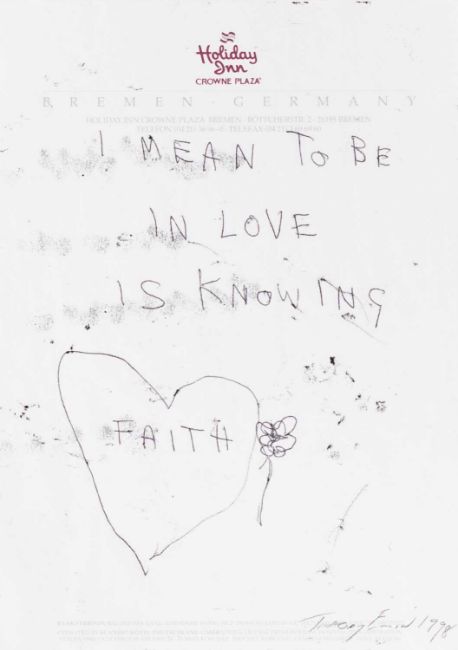 Holiday
Inn
CROWNE PLAZA
BREMEN · GERMANY
HOLIDAY INN CROWNE PLAZA BREMEN · BÖTTCHERSTR. 2 · 28195 BREMEN
I MEAN TO BE
IN LOVE
IS KNOWING
FAITH
Tracey Emin 1998